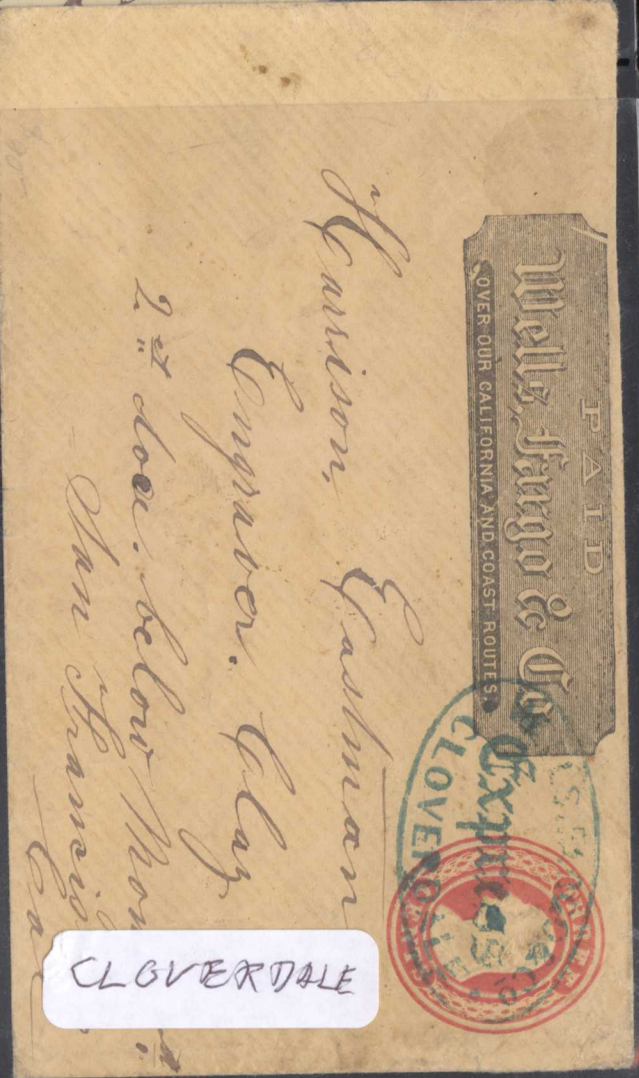 PAID
Wells, Fargo & Co
OVER OUR CALIFORNIA AND COAST ROUTES.
Express
CLOVERDALE.
THREE
Harrison, Eastman
Engraver. Clay
2nd door. below
San Francis
Cal
CLOVERDALE